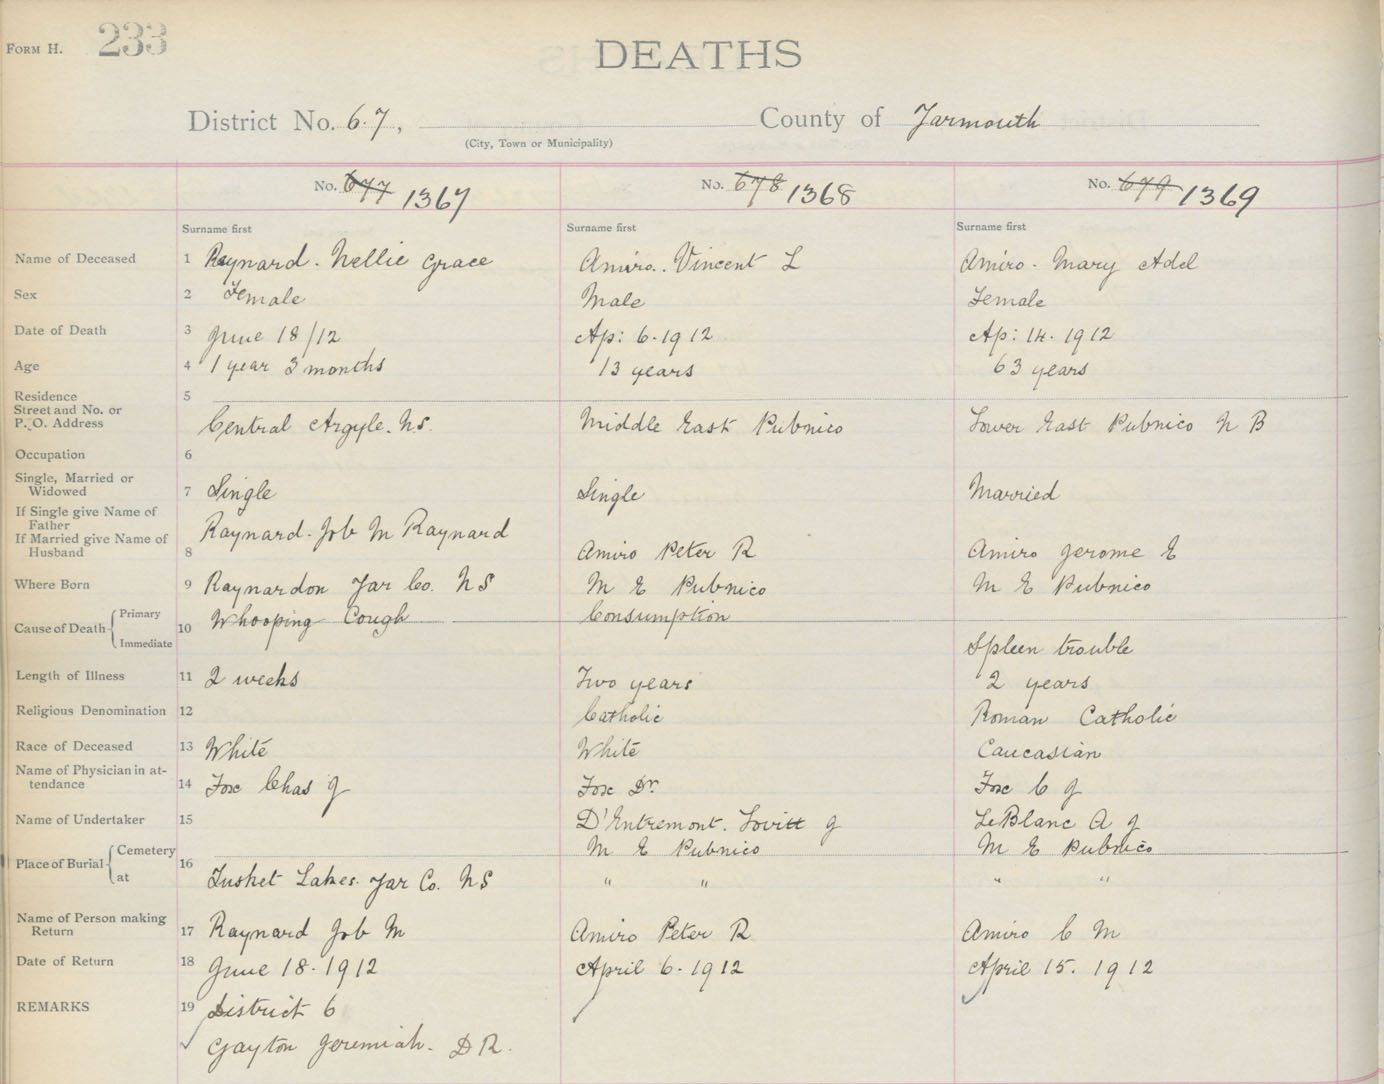 FORM H. 233
DEATHS
District No. 6.7, County of Yarmouth
(City, Town or Municipality)
No. 677 1367 No. 678 1368 No. 679 1369
Surname first Surname first Surname first
Name of Deceased 1 Raynard. Nellie Grace Amiro.. Vincent L Amiro. Mary Adel
Sex 2 Female Male Female
Date of Death 3 June 18/12 Ap: 6.1912 Ap: 14. 1912
Age 4 1 year 3 months 13 years 63 years
Residence 5
Street and No. or
P. O. Address Central Argyle. N.S. Middle East Pubnico Lower East Pubnico N B
Occupation 6
Single, Married or
Widowed 7 Single Single Married
If Single give Name of
Father Raynard. Job M Raynard
If Married give Name of
Husband 8 Amiro Peter R Amiro Jerome E
Where Born 9 Raynardon Yar Co. N S M E Pubnico M E Pubnico
Cause of Death 10
Primary Whooping Cough Consumption
Immediate Spleen trouble
Length of Illness 11 2 weeks Two years 2 years
Religious Denomination 12 Catholic Roman Catholic
Race of Deceased 13 White White Caucasian
Name of Physician in at-
tendance 14 Fox Chas J Fox Dr. Fox C J
Name of Undertaker 15 D'Entremont. Lovitt J LeBlanc A J
Place of Burial 16
Cemetery M E Pubnico M E Pubnico
at Tusket Lakes. Yar Co. N S " " " "
Name of Person making
Return 17 Raynard Job M Amiro Peter R Amiro C M
Date of Return 18 June 18.1912 April 6.1912 April 15. 1912
REMARKS 19 District 6
Gayton Jeremiah. D R.